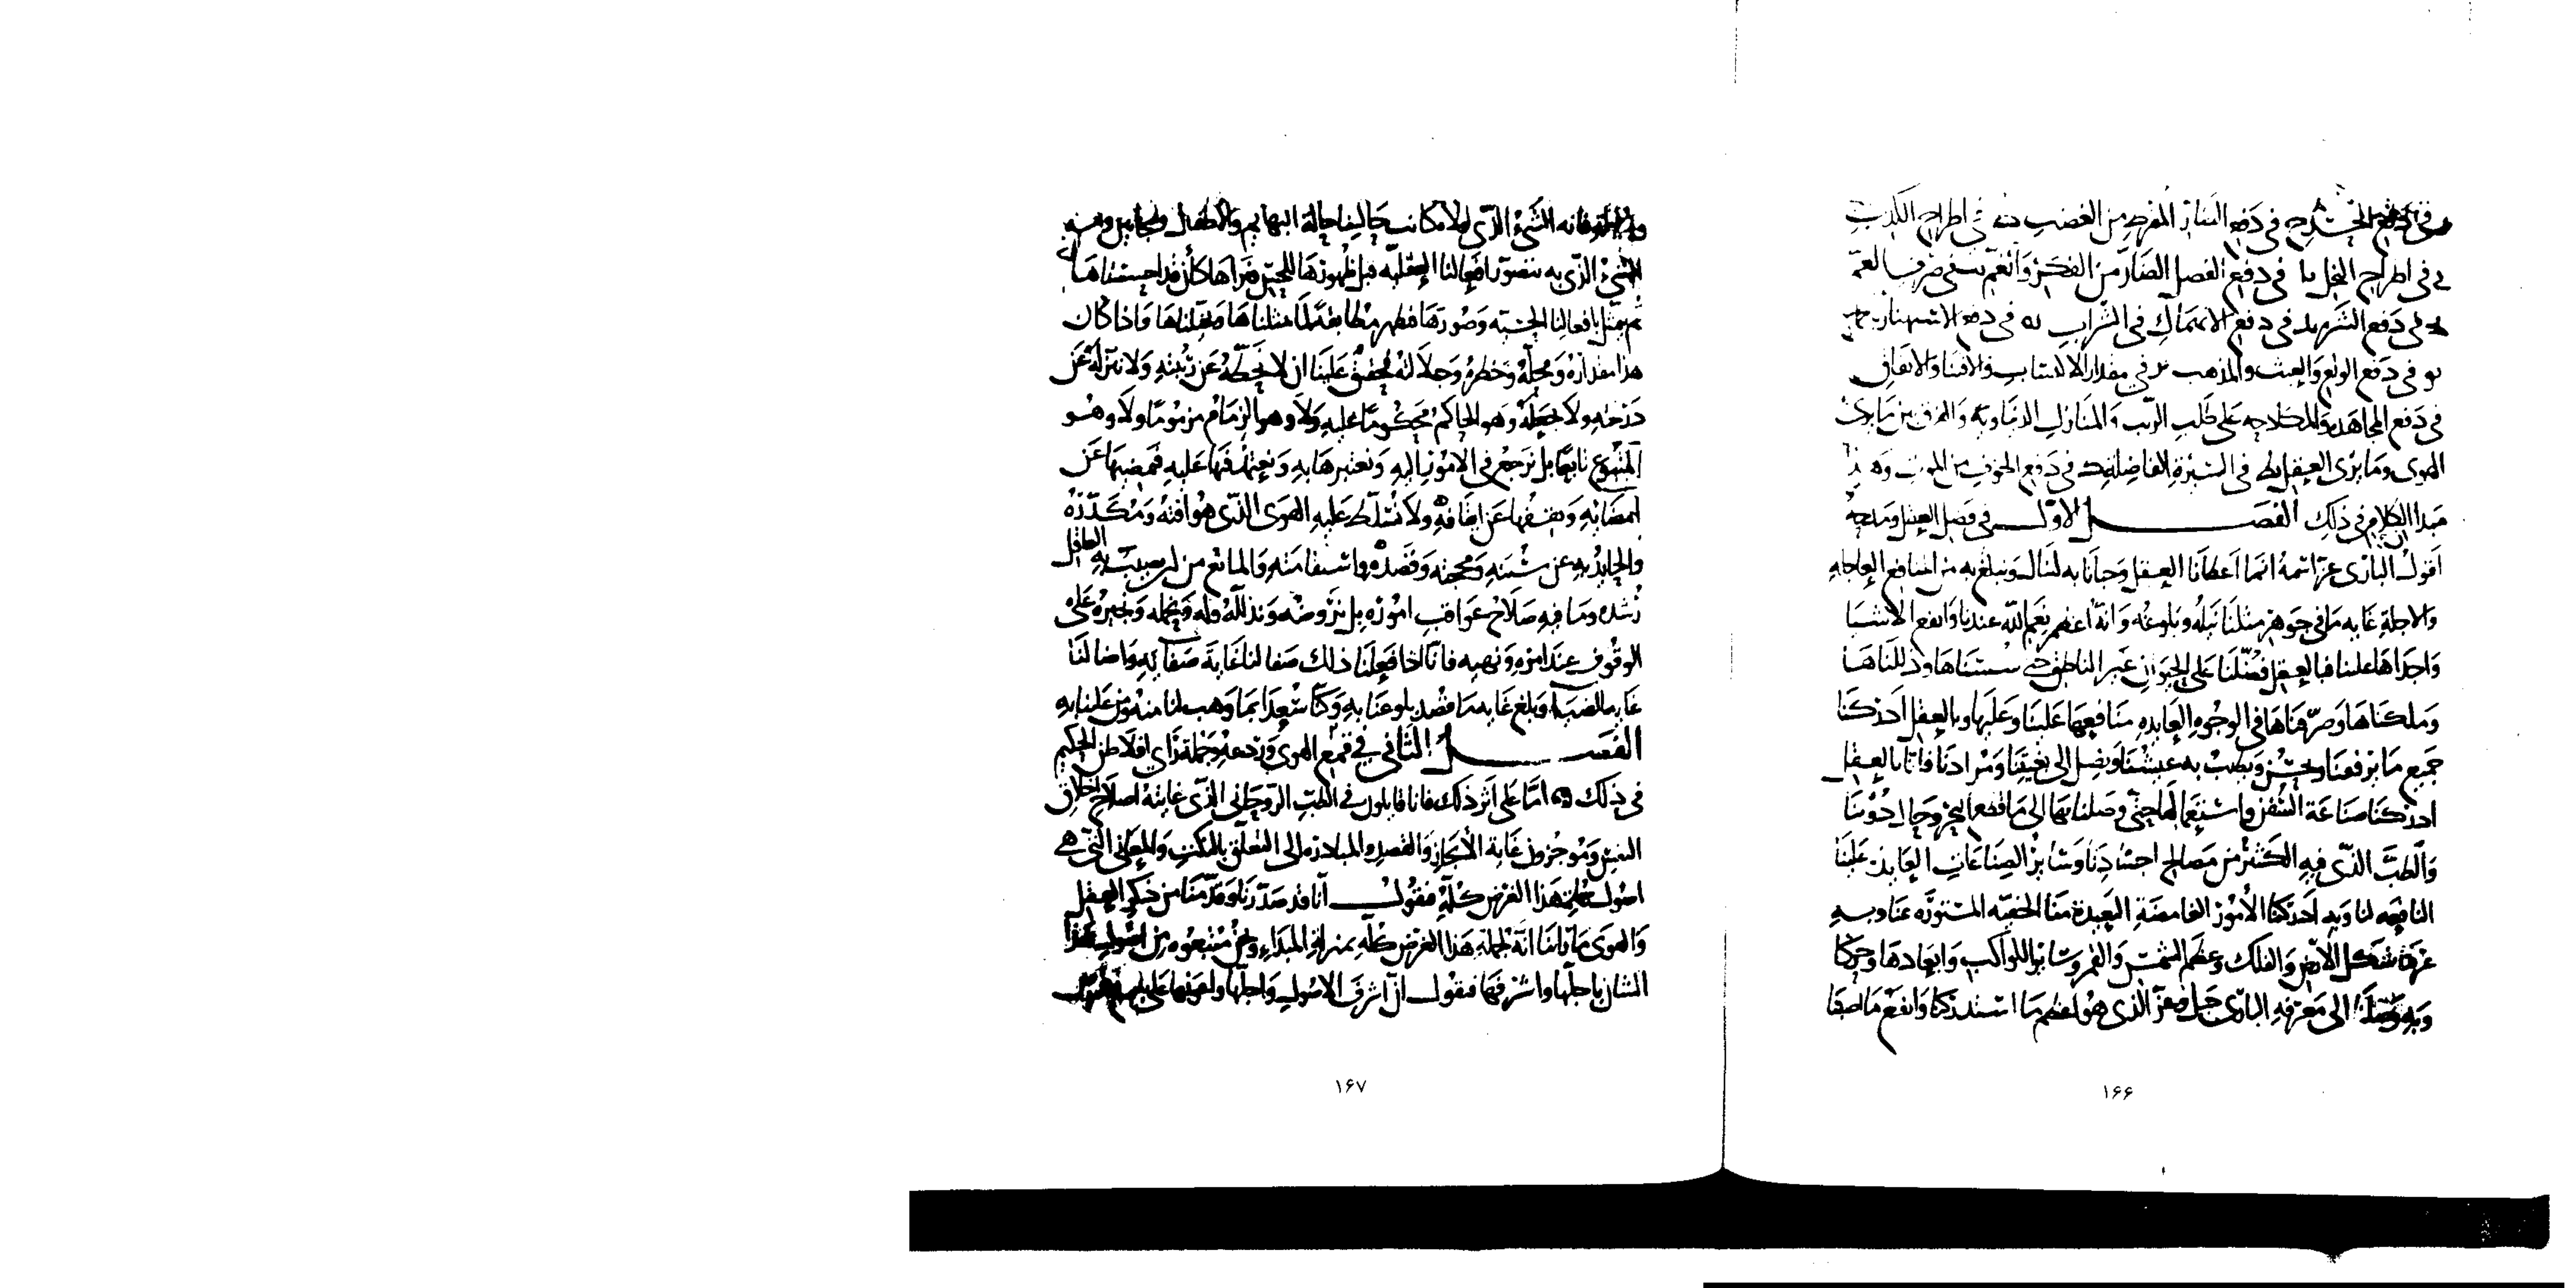 في دفع الحسد ح في دفع الضار المفرط من الغضب ط في اطراح الكذب
ي في اطراح البخل يا في دفع الفضل الضار من الفكر والغم يب في صرف الغم
يج في دفع الشره يد في دفع الانهماك في الشراب يه في دفع الاستهتار بالجماع
يو في دفع الولع والعبث والمذهب يز في مقدار الاكتساب والاقتنا والانفاق
في دفع المجاهدة والمكادحة على طلب الرتب والمنازل الدنياوية والفرق بين ما يرى
الهوى وما يرى العقل يط في السيرة الفاضلة ك في دفع الخوف من الموت وهذا
مبدا الكلام في ذلك الفصل الاول في فضل العقل ومدحه
اقول الباري عز اسمه انما اعطانا العقل وحبانا به لننال ونبلغ به من المنافع العاجلة
والاجلة غاية ما في جوهر مثلنا نيله وبلوغه وانه اعظم نعم الله عندنا وانفع الاشيا
واجداها علينا فبالعقل فضلنا على الحيوان غير الناطق حتى سسناها وذللناها
وملكناها وصرفناها في الوجوه العايدة منافعها علينا وعليها وبالعقل ادركنا
جميع ما يرفعنا ويحسن ويطيب به عيشنا ونصل الى بغيتنا ومرادنا فانا بالعقل
ادركنا صناعة السفن واستعمالها حتى وصلنا بها الى ما قطع البحر وحال دوننا
والطب الذي فيه الكثير من مصالح اجسادنا وساير الصناعات العايدة علينا
النافعة لنا وبه ادركنا الامور الغامضة البعيدة منا الخفية المستورة عنا وبه
عرفنا شكل الارض والفلك وعظم الشمس والقمر وساير الكواكب وابعادها وحركاتها
وبه وصلنا الى معرفة الباري جل وعز الذي هو اعظم ما استدركنا وانفع ما اصبنا
۱۶۶
وبالجملة فانه الشيء الذي لولاه كانت حالتنا حالة البهايم والاطفال والمجانين وهو
الشيء الذي به نتصور افعالنا العقلية قبل ظهورها للحس فنراها كأن قد احسسناها
ثم نمثل بافعالنا الحسية وصورها فتظهر مطابقة لما مثلناها وتخيلناها واذا كان
هذا مقداره ومحله وخطره وجلالته فحقيق علينا ان لا نحطه عن رتبته ولا ننزله عن
درجته ولا نجعله وهو الحاكم محكوما عليه ولا وهو الزمام مزموما ولا وهو
المتبوع تابعا بل نرجع في الامور اليه ونعتبرها به ونعتمد فيها عليه فنمضيها على
امضائه ونقفها على ايقافه ولا نسلط عليه الهوى الذي هو افته ومكدره
والحايد به عن سننه ومحجته وقصده واستقامته والمانع من ان يصيب به العاقل
رشده وما فيه صلاح عواقب اموره بل نروضه ونذلله ونحمله ونجبره على
الوقوف عند امره ونهيه فانا اذا فعلنا ذلك صفا لنا غاية صفائه واضا لنا
غاية اضائه وبلغ غاية ما قصد بلوغنا به وكنا سعدا بما وهب لنا منه ومن علينا به
الفصل الثاني في قمع الهوى وردعه وجملة راي افلاطن الحكيم
في ذلك اما على اثر ذلك فانا قايلون في الطب الروحاني الذي غايته اصلاح اخلاق
النفس وموجزون غاية الايجاز والقصد والمبادرة الى التعلق بالنكت والمعاني التي هي
اصول هذا الغرض كله فنقول انا قد صدرنا وقدمنا من ذكر العقل
والهوى ما راينا انه لجملة هذا الغرض كله بمنزلة المبداء ونحن متبعوه من اصول هذا
الشان باجلها واشرفها فنقول ان اشرف الاصول واجلها واعونها على بلوغ
۱۶۷